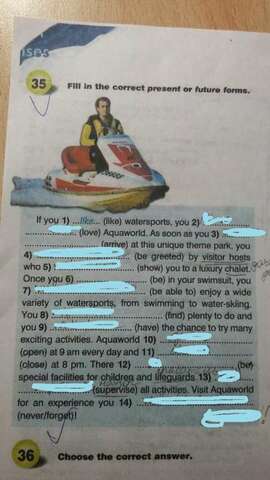 35 Fill in the correct present or future forms.
If you 1) ...like... (like) watersports, you 2)
(love) Aquaworld. As soon as you 3)
(arrive) at this unique theme park, you
4) (be greeted) by visitor hosts
who 5) (show) you to a luxury chalet.
Once you 6) (be) in your swimsuit, you
7) (be able to) enjoy a wide
variety of watersports, from swimming to water-skiing.
You 8) (find) plenty to do and
you 9) (have) the chance to try many
exciting activities. Aquaworld 10)
(open) at 9 am every day and 11)
(close) at 8 pm. There 12) (be)
special facilities for children and lifeguards 13)
(supervise) all activities. Visit Aquaworld
for an experience you 14)
(never/forget)!
36 Choose the correct answer.